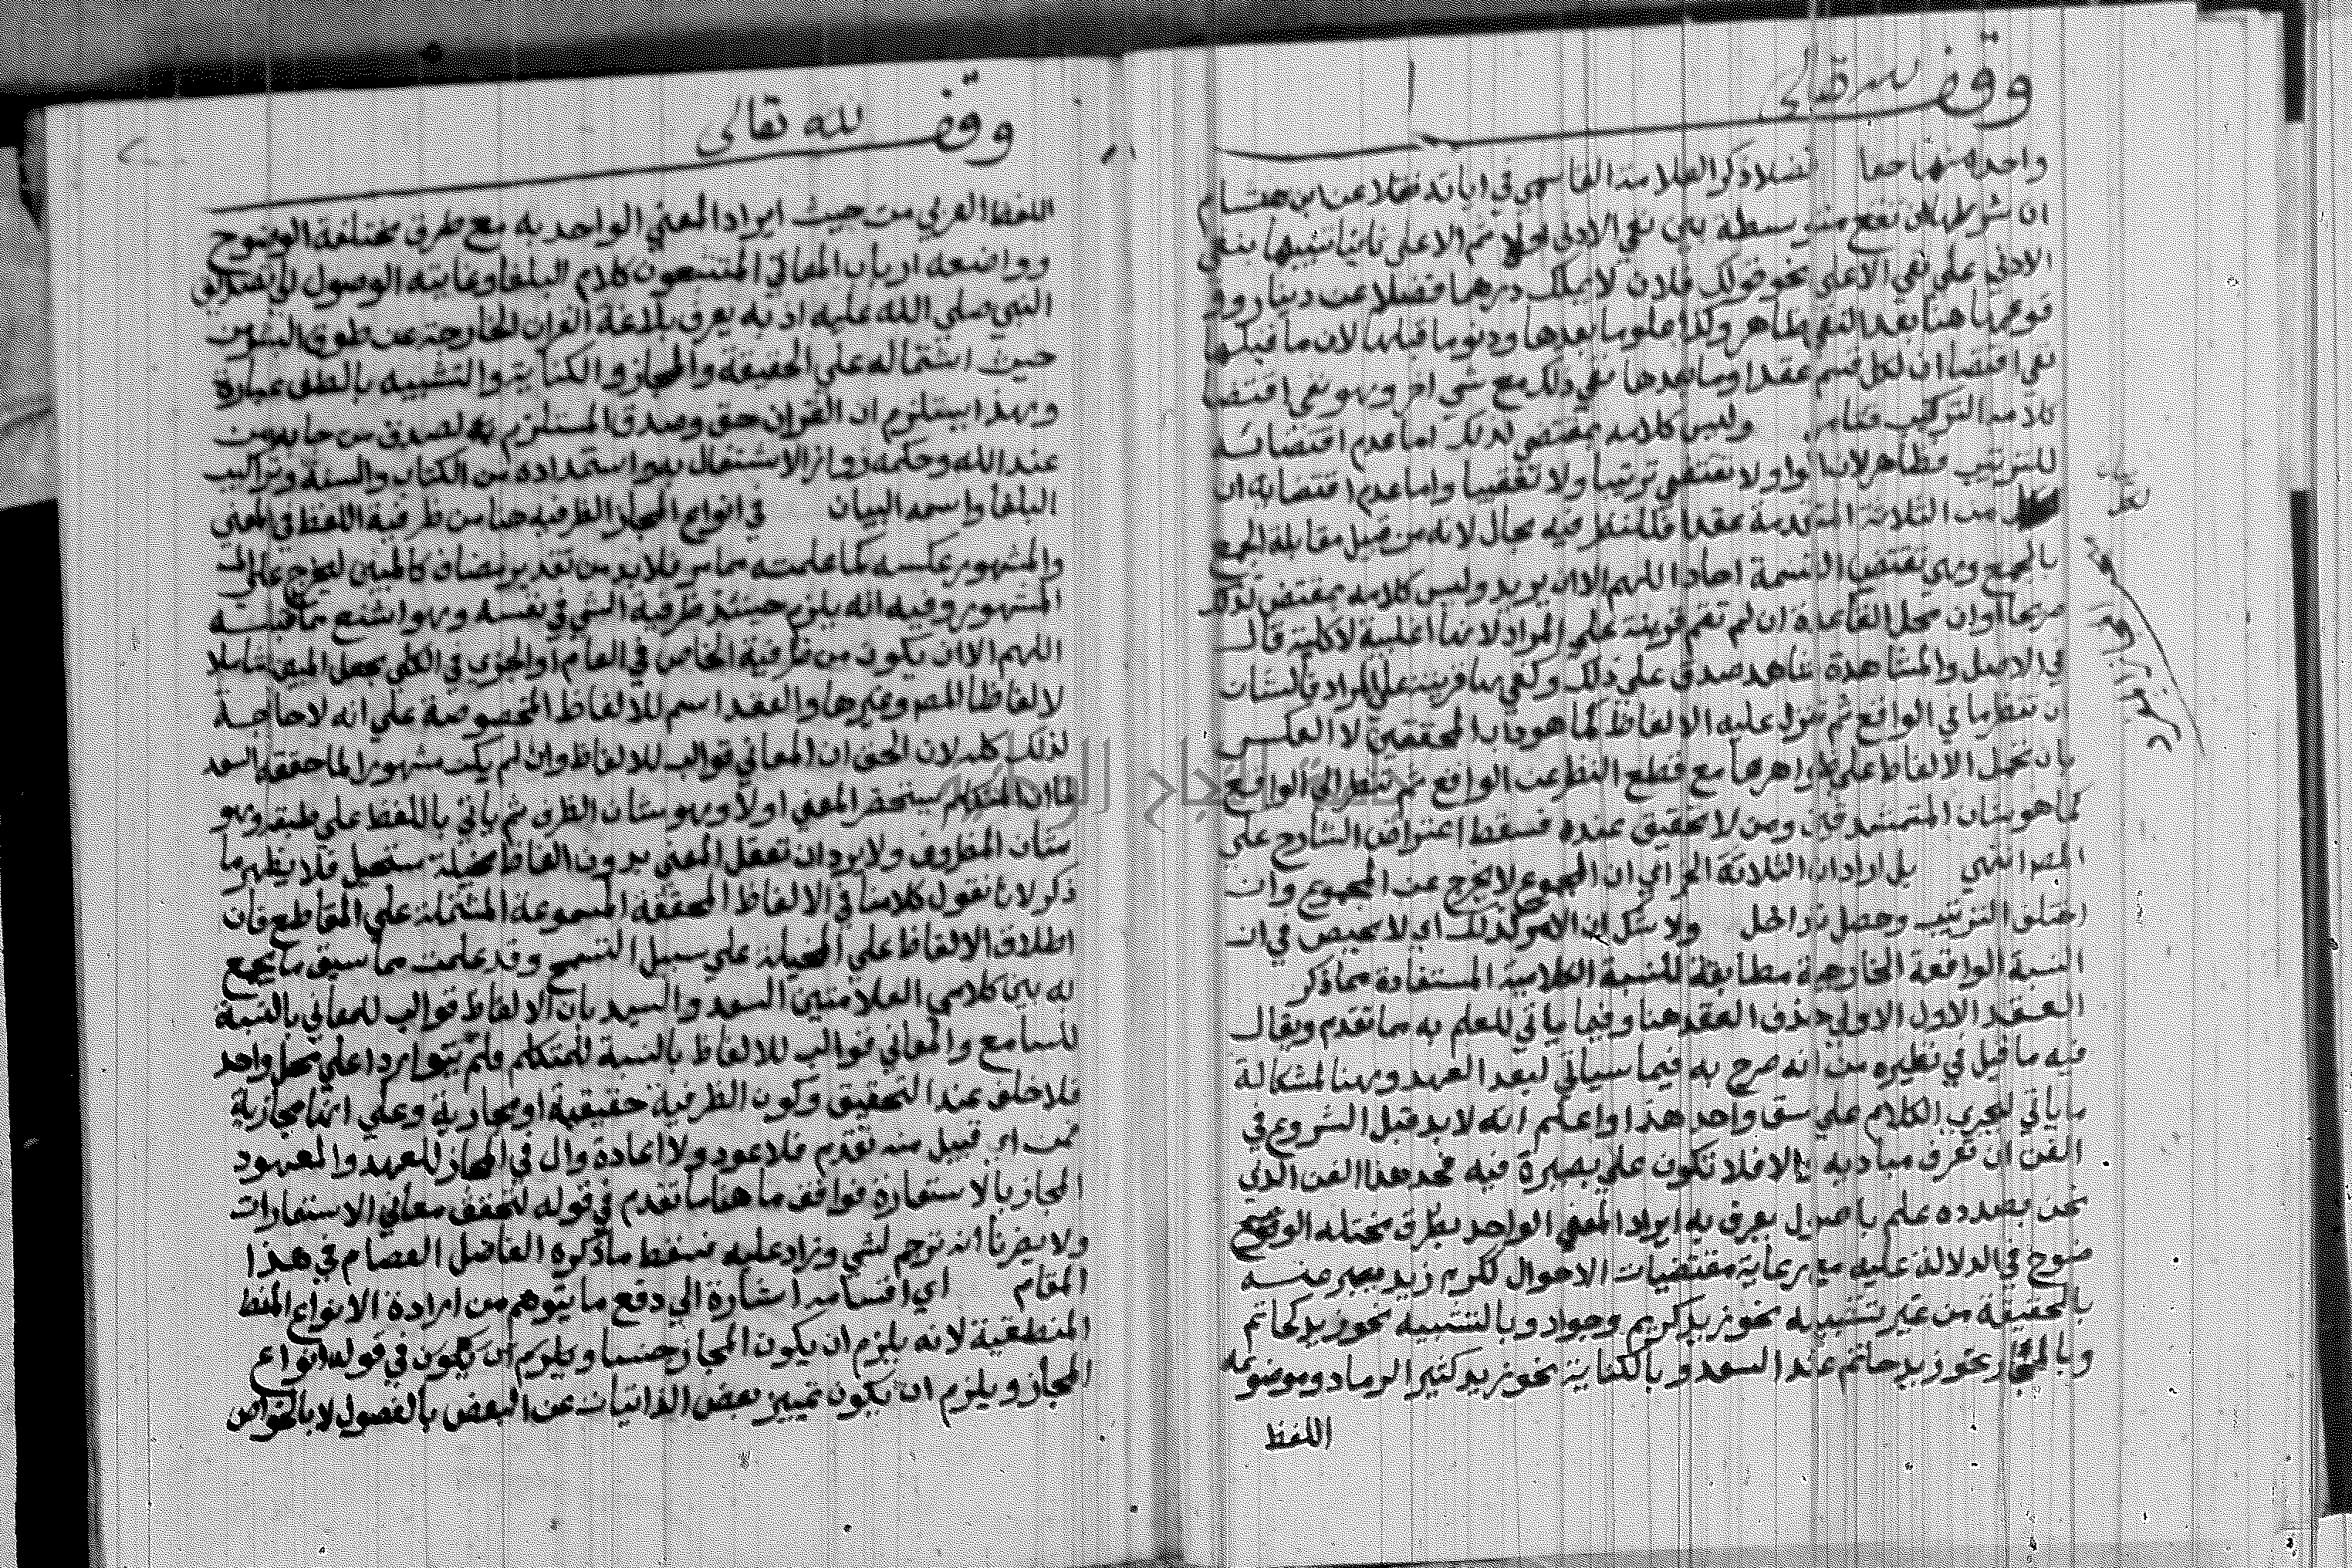 وقف لله تعالى
واحدة منها حقا فضلا ذكر العلامة القاسمي في اياته نقلا عن ابن هشام
ان شرطها ان تقع متوسطة بين نفي الادنى اولا ثم الاعلى ثانيا تنبيها بنفي
الادني علي نفي الاعلي نحو قولك فلان لا يملك درهما فضلا عن دينار وو
قوعها هنا بعد النفي ظاهر وكذا علو ما بعدها ودنو ما قبلها لان ما قبلها
نفي اقتضا ان لكل قسم عقدا وما بعدها نفي ذلك مع شي اخر وهو نفي اقتضا
كلامه التركيب فتامل وليس كلامه بمقتضي لذلك اما عدم اقتضائه
للترتيب فظاهر لان الواو لا تقتضي ترتيبا ولا تعقيبا واما عدم اقتضايه ان
من الثلاثة المتقدمة عقدا فللنظر فيه مجال لانه من قبيل مقابلة الجمع
بالجمع وهي تقتضي القسمة احادا اللهم الا ان يريد وليس كلامه بمقتض لذلك
صريحا او ان محل القاعدة ان لم تقم قرينة علي المراد لانها اغلبية لا كلية قال
في الاصل والمشاهدة شاهد صدق علي ذلك وكفي بها قرينة علي المراد فالشان
ان تنظر ما في الواقع ثم تنزل عليه الالفاظ كما هو داب المحققين لا العكس
بان تحمل الالفاظ علي ظواهرها مع قطع النظر عن الواقع ثم تنظر الي الواقع
كما هو شان المتمشدقين ومن لا تحقيق عنده فسقط اعتراض الشارح علي
المص انتهي بل اراد ان الثلاثة الخ اي ان المجموع لا يخرج عن المجموع وان
اختلف الترتيب وحصل تداخل ولا شك ان الامر كذلك اي لا محيص في ان
النسبة الواقعة الخارجية مطابقة للنسبة الكلامية المستفادة مما ذكر
العقد الاول الاولي حذف العقد هنا وفيما ياتي للعلم به مما تقدم ويقال
فيه ما قيل في نظيره من انه صرح به فيما سياتي لبعد العهد وهنا لمشاكلة
ما ياتي ليجري الكلام علي سق واحد هذا واعلم انه لا بد قبل الشروع في
الفن ان تعرف مباديه والا فلا تكون علي بصيرة فيه فحد هذا الفن الذي
نحن بصدده علم باصول يعرف به ايراد المعني الواحد بطرق مختلفه الوضوح
ضوح في الدلالة عليه مع رعاية مقتضيات الاحوال لكريم زيد يعبر عنه
بالحقيقة من غير تشبيه نحو زيد كريم وجواد وبالتشبيه نحو زيد كحاتم
وبالمجاز نحو زيد حاتم عند السعد وبالكناية نحو زيد كثير الرماد وموضوعه
اللفظ
لكل
وقف لله تعالى
اللفظ العربي من حيث ايراد المعني الواحد به مع طرق مختلفة الوضوح
وواضعه ارباب المعاني المتتبعون كلام البلغا وغايته الوصول الي تصديق
النبي صلي الله عليه اذ به يعرف بلاغة القران الخارجة عن طوق البشر من
حيث اشتماله علي الحقيقة والمجاز والكناية والتشبيه بالطف عبارة
وبهذا يستلزم ان القران حق وصدق المستلزم لصدق من جا به من
عند الله وحكمه جواز الاشتغال به واستمداده من الكتاب والسنة وتراكيب
البلغا واسمه البيان في انواع المجاز الظرفية هنا من ظرفية اللفظ في المعني
والمشهور عكسه كما علمته مما مر فلا بد من تقدير مضاف كالمبين ليخرج علي
المشهور وفيه انه يلزم حينئذ ظرفية الشي في نفسه وهو اشنع مما قبله
اللهم الا ان يكون من ظرفية الخاص في العام او الجزي في الكلي بجعل المبين شاملا
لالفاظ المص وغيرها والعقد اسم للالفاظ المخصوصة علي انه لا حاجة
لذلك كله لان الحق ان المعاني قوالب للالفاظ وان لم يكن مشهورا لما حققه السعد
ان المتكلم يستحضر المعني اولا وهو شان الظرف ثم ياتي باللفظ علي طبقه وهو
شان المظروف ولا يرد ان تعقل المعني بدون الفاظ مخيلة مستحيل فلا يظهر ما
ذكر لانا نقول كلامنا في الالفاظ المحققة المسموعة المشتملة علي المقاطع فان
اطلاق الالفاظ علي المخيلة علي سبيل التسمح وقد علمت مما سبق ما يجمع
به بين كلامي العلامتين السعد والسيد بان الالفاظ قوالب للمعاني بالنسبة
للسامع والمعاني قوالب للالفاظ بالنسبة للمتكلم فلم يتواردا علي محل واحد
فلا خلف عند التحقيق وكون الظرفية حقيقية او مجازية وعلي انها مجازية
فمن اي قبيل منه تقدم فلا عود ولا اعادة وال في المجاز للعهد والمعهود
المجاز بالاستعارة فوافق ما هنا ما تقدم في قوله لتحقق معاني الاستعارات
ولا يضرنا انه ترجم لشي وزاد عليه فسقط ما ذكره الفاضل العصام في هذا
المقام اي اقسامه اشارة الي دفع ما يتوهم من ارادة الانواع المنط
المنطقية لانه يلزم ان يكون المجاز جنسا ويلزم ان يكون في قوله انواع
المجاز ويلزم ان يكون تمييز بعض الذاتيات عن البعض بالفصول لا بالخواص